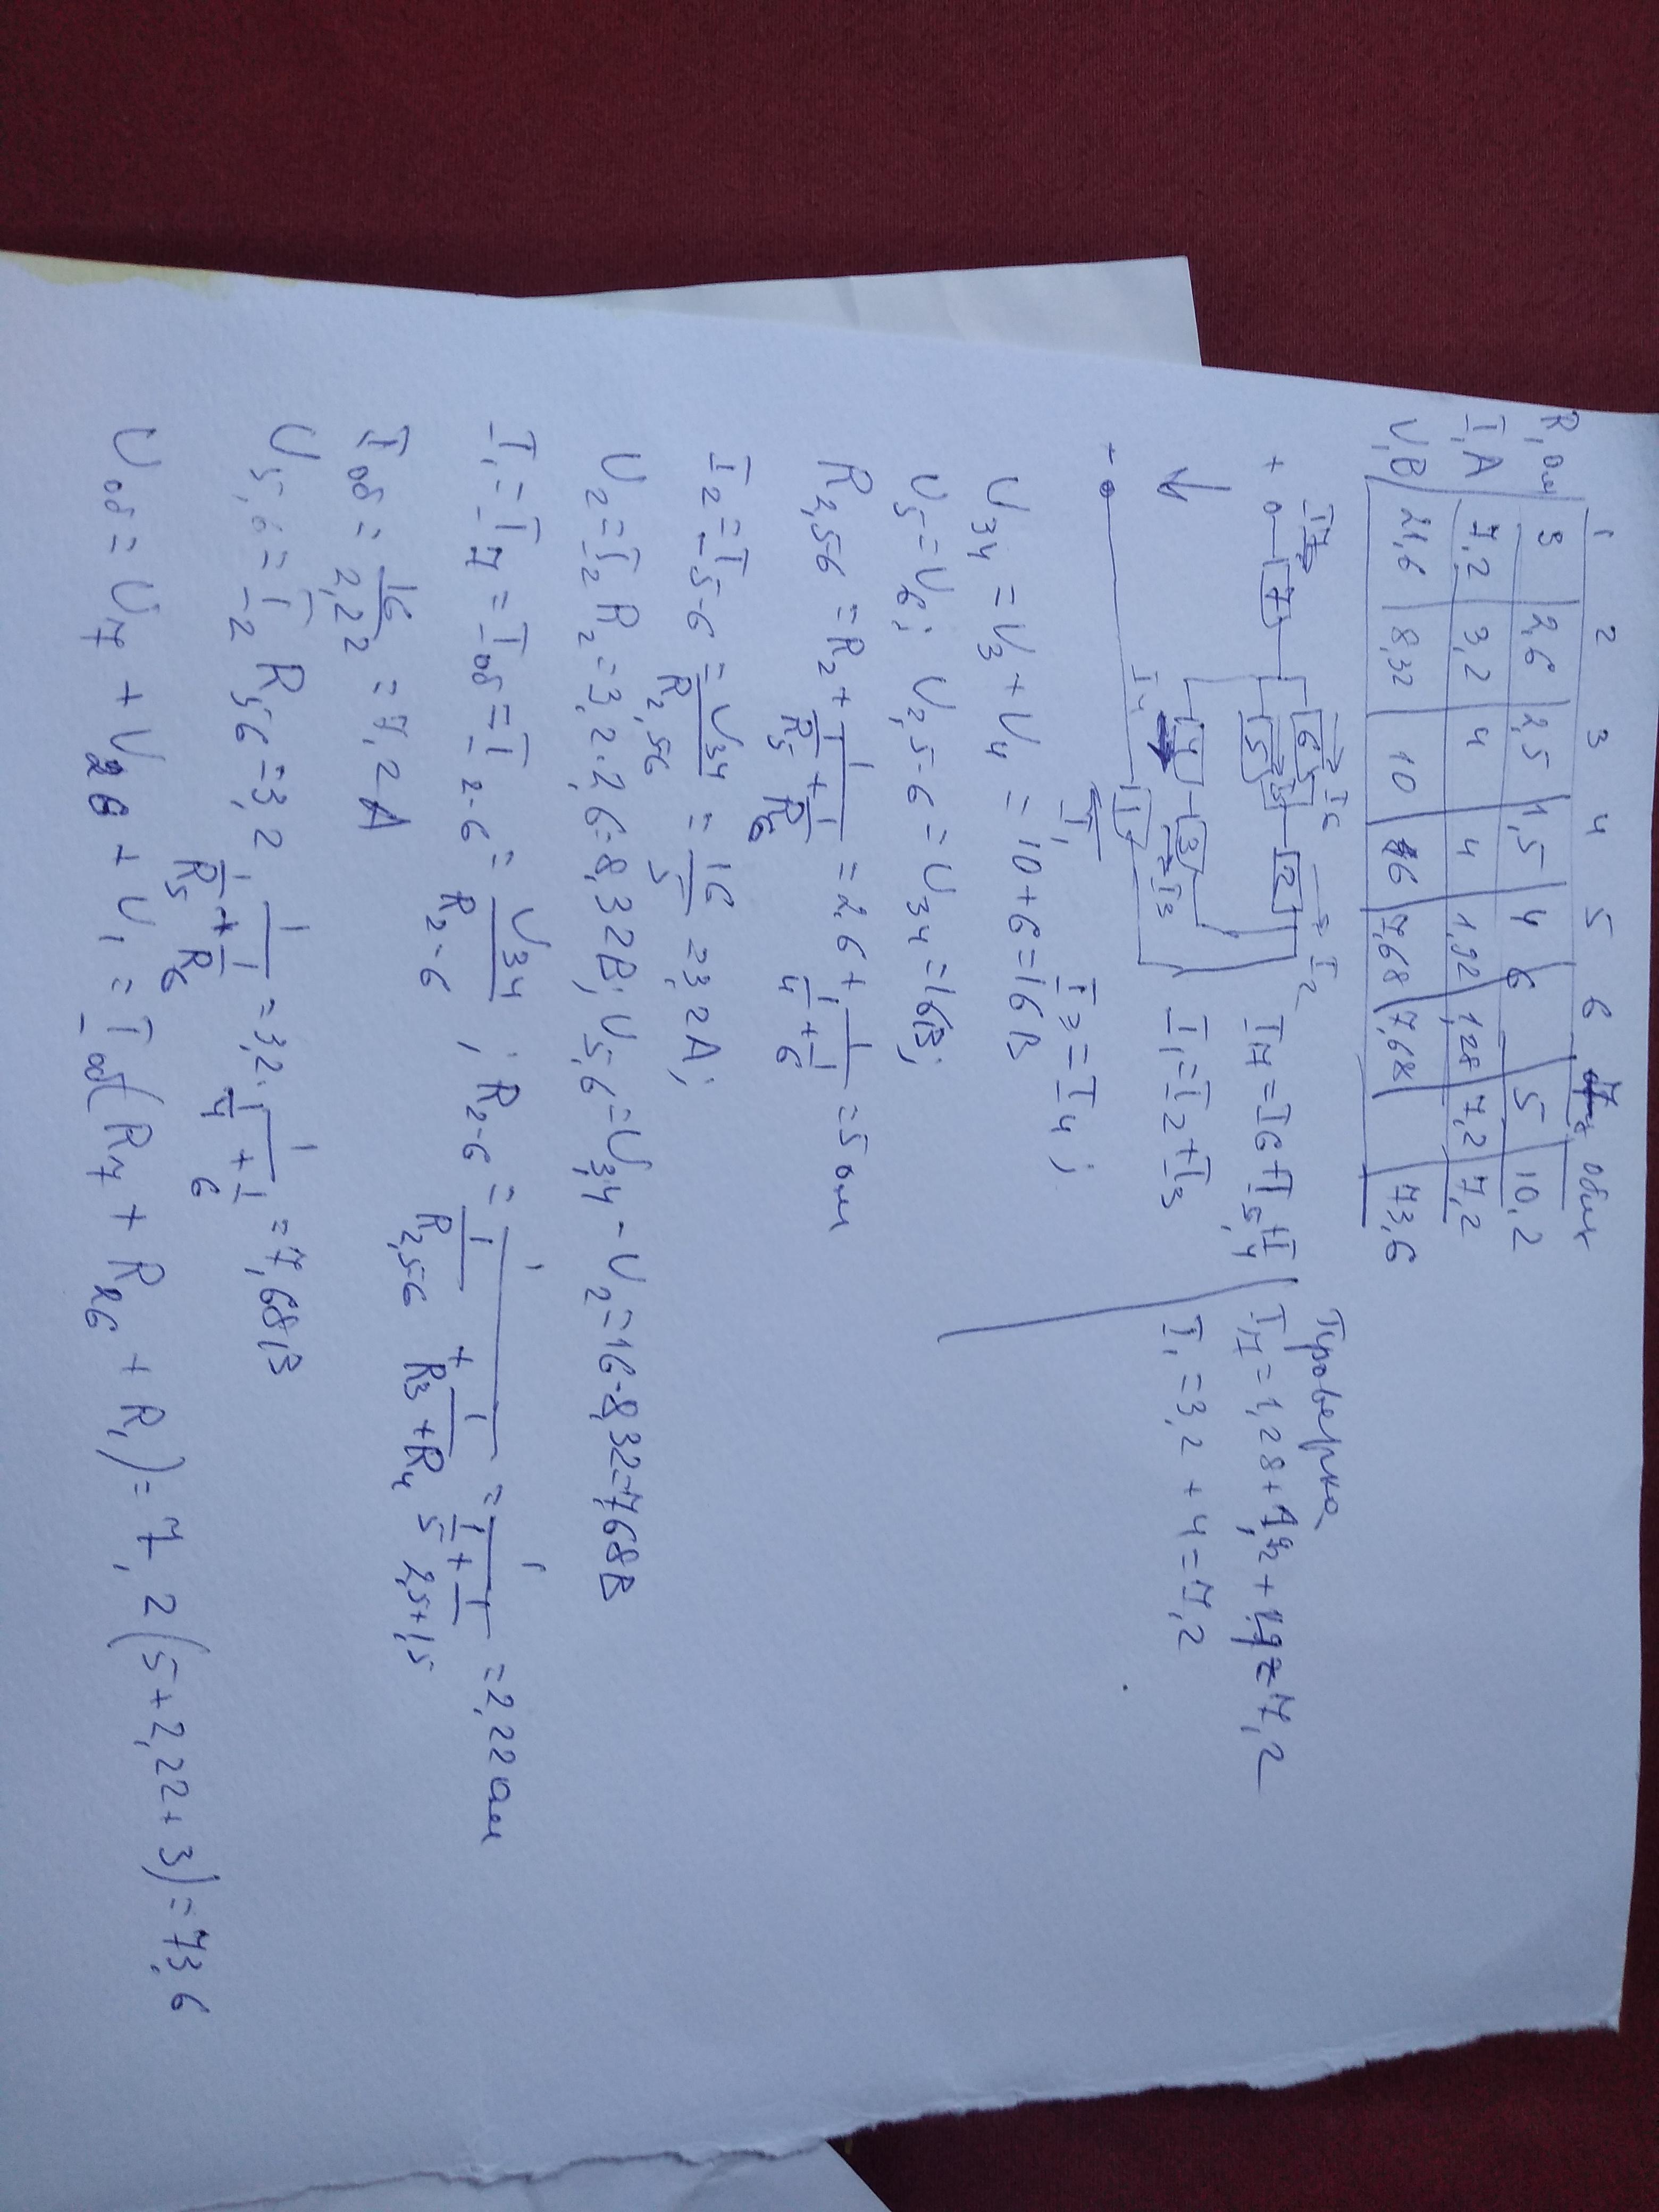 1 2 3 4 5 6 7 общ
R, Ом 3 2,6 2,5 1,5 4 6 5 10,2
I, A 7,2 3,2 4 4 1,92 1,28 7,2 7,2
U, В 21,6 8,32 10 6 7,68 7,68 73,6
Проверка
I7 I6 I2
+ 7 6 5 2
I7 = I6 + I5 + I4
I7 = 1,28 + 1,92 + 4 = 7,2
4 3 I3
I1 = I2 + I3
I1 = 3,2 + 4 = 7,2
I4
1
I1
I3 = I4;
U34 = U3 + U4 = 10 + 6 = 16 В
U5 = U6; U2,5-6 = U34 = 16В;
R2,56 = R2 + 1/(1/R5 + 1/R6) = 2,6 + 1/(1/4 + 1/6) = 5 Ом
I2 = I5-6 = U34/R2,56 = 16/5 = 3,2А;
U2 = I2 R2 = 3,2·2,6 = 8,32В; U5,6 = U3,4 - U2 = 16-8,32=7,68В
I1 = I7 = Iоб = I2-6 = U34/R2-6; R2-6 = 1/(1/R2,56 + 1/(R3 + R4)) = 1/(1/5 + 1/(2,5+1,5)) = 2,22 Ом
Iоб = 16/2,22 = 7,2 А
U5,6 = I2 R56 = 3,2 1/(1/R5 + 1/R6) = 3,2· 1/(1/4 + 1/6) = 7,68В
Uоб = U7 + U26 + U1 = Iоб(R7 + R26 + R1) = 7,2(5+2,22+3) = 73,6